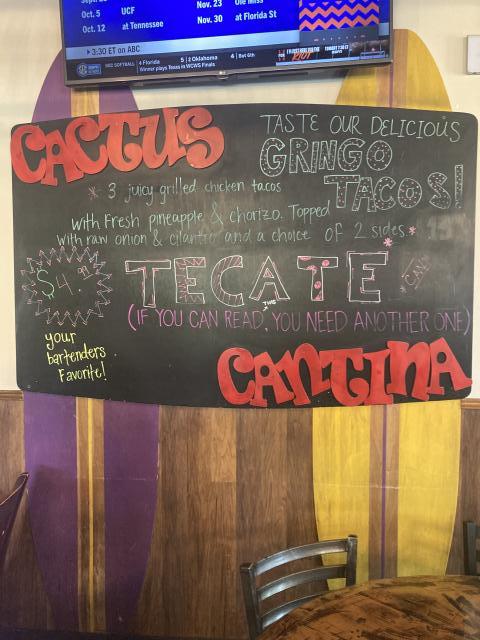 Oct. 5 UCF Nov. 23 Ole Miss
Oct. 12 at Tennessee Nov. 30 at Florida St
3:30 ET on ABC
SEC SOFTBALL 4 Florida 5 2 Oklahoma 4 Bot 6th
Winner plays Texas in WCWS Finals
CACTUS
TASTE OUR DELICIOUS
GRINGO
TACOS!
* 3 juicy grilled chicken tacos
with Fresh pineapple & chorizo. Topped
with raw onion & cilantro and a choice of 2 sides *
$4.
TECATE
CAN
(IF YOU CAN READ THIS, YOU NEED ANOTHER ONE)
your
bartenders
Favorite!
CANTINA